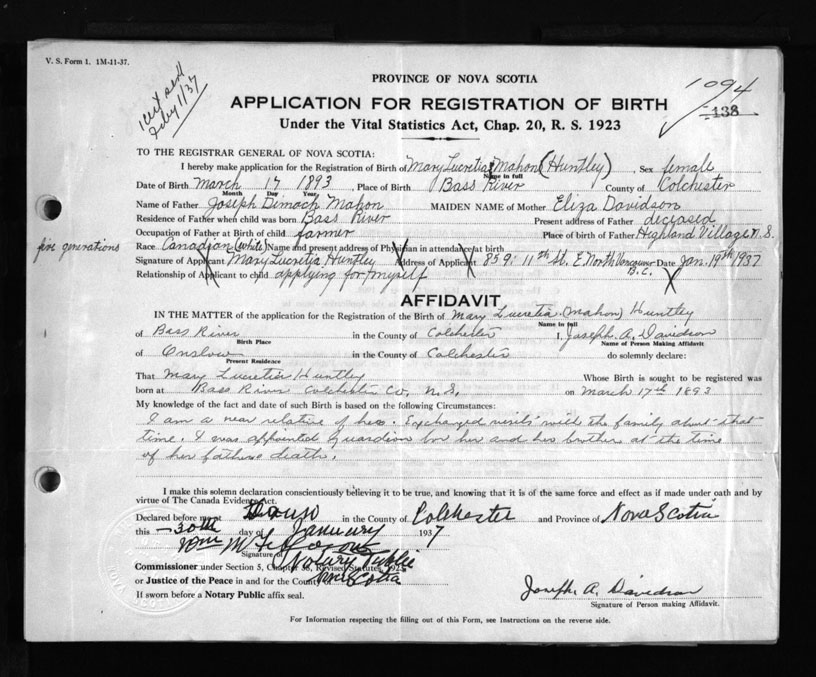 V. S. Form 1. 1M-11-37.
1 cert sent
Feby 1/37
PROVINCE OF NOVA SCOTIA
1094
138
APPLICATION FOR REGISTRATION OF BIRTH
Under the Vital Statistics Act, Chap. 20, R. S. 1923
TO THE REGISTRAR GENERAL OF NOVA SCOTIA:
I hereby make application for the Registration of Birth of Mary Lucretia Mahon (Huntley), Sex female
Name in full
Date of Birth March 17 1893, Place of Birth Bass River County of Colchester
Month Day Year
Name of Father Joseph Dimock Mahon MAIDEN NAME of Mother Eliza Davidson
Residence of Father when child was born Bass River Present address of Father diceased
Occupation of Father at Birth of child farmer Place of birth of Father Highland Village N.S.
five generations Race Canadian (white) Name and present address of Physician in attendance at birth
Signature of Applicant Mary Lucretia Huntley Address of Applicant 859: 11th St. E North Vancouver B.C. Date Jan. 19th 1937
Relationship of Applicant to child applying for myself
AFFIDAVIT
IN THE MATTER of the application for the Registration of the Birth of Mary Lucretia (Mahon) Huntley
Name in full
of Bass River in the County of Colchester I, Joseph A. Davidson
Birth Place Name of Person Making Affidavit
of Onslow in the County of Colchester do solemnly declare:
Present Residence
That Mary Lucretia Huntley Whose Birth is sought to be registered was
born at Bass River Colchester Co, N.S. on March 17th 1893
My knowledge of the fact and date of such Birth is based on the following Circumstances:
I am a near relative of hers. Exchanged visits with the family about that
time. I was appointed guardian for her and her brother at the time
of her fathers death.
I make this solemn declaration conscientiously believing it to be true, and knowing that it is of the same force and effect as if made under oath and by
virtue of The Canada Evidence Act.
Declared before me at Truro in the County of Colchester and Province of Nova Scotia
this 30th day of January 1937
Wm
Signature of
Notary Public
Commissioner under Section 5, Chapter 38, Revised Statutes, 1923
Nova Scotia
or Justice of the Peace in and for the County of
If sworn before a Notary Public affix seal.
NOVA SCOTIA
Joseph A. Davidson
Signature of Person making Affidavit.
For Information respecting the filling out of this Form, see Instructions on the reverse side.